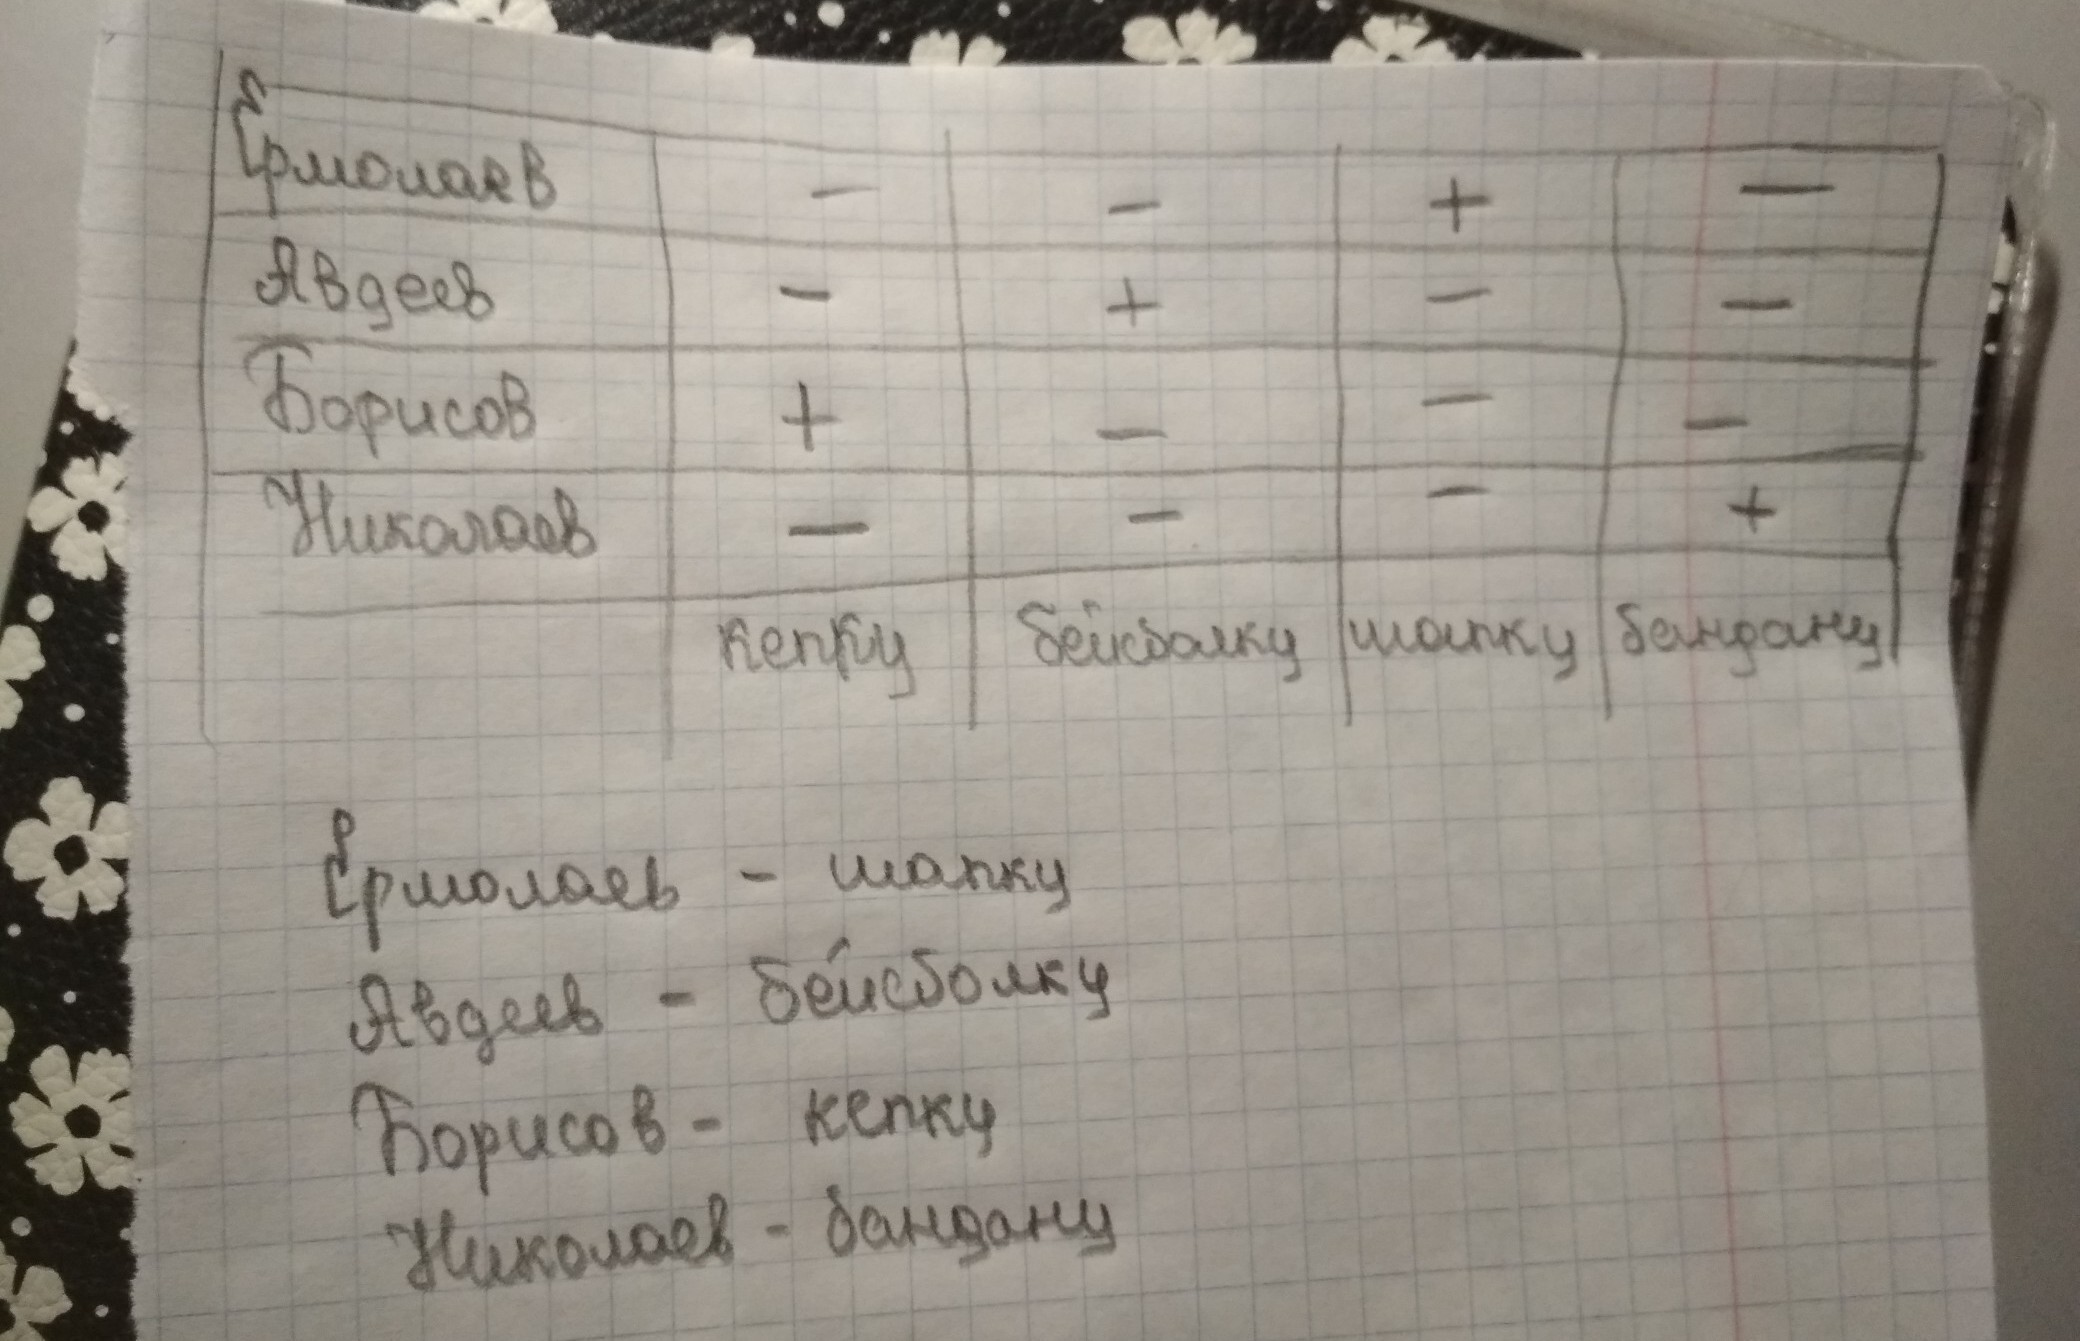 Ермолаев - - + -
Авдеев - + - -
Борисов + - - -
Николаев - - - +
кепку бейсболку шапку бандану
Ермолаев - шапку
Авдеев - бейсболку
Борисов - кепку
Николаев - бандану